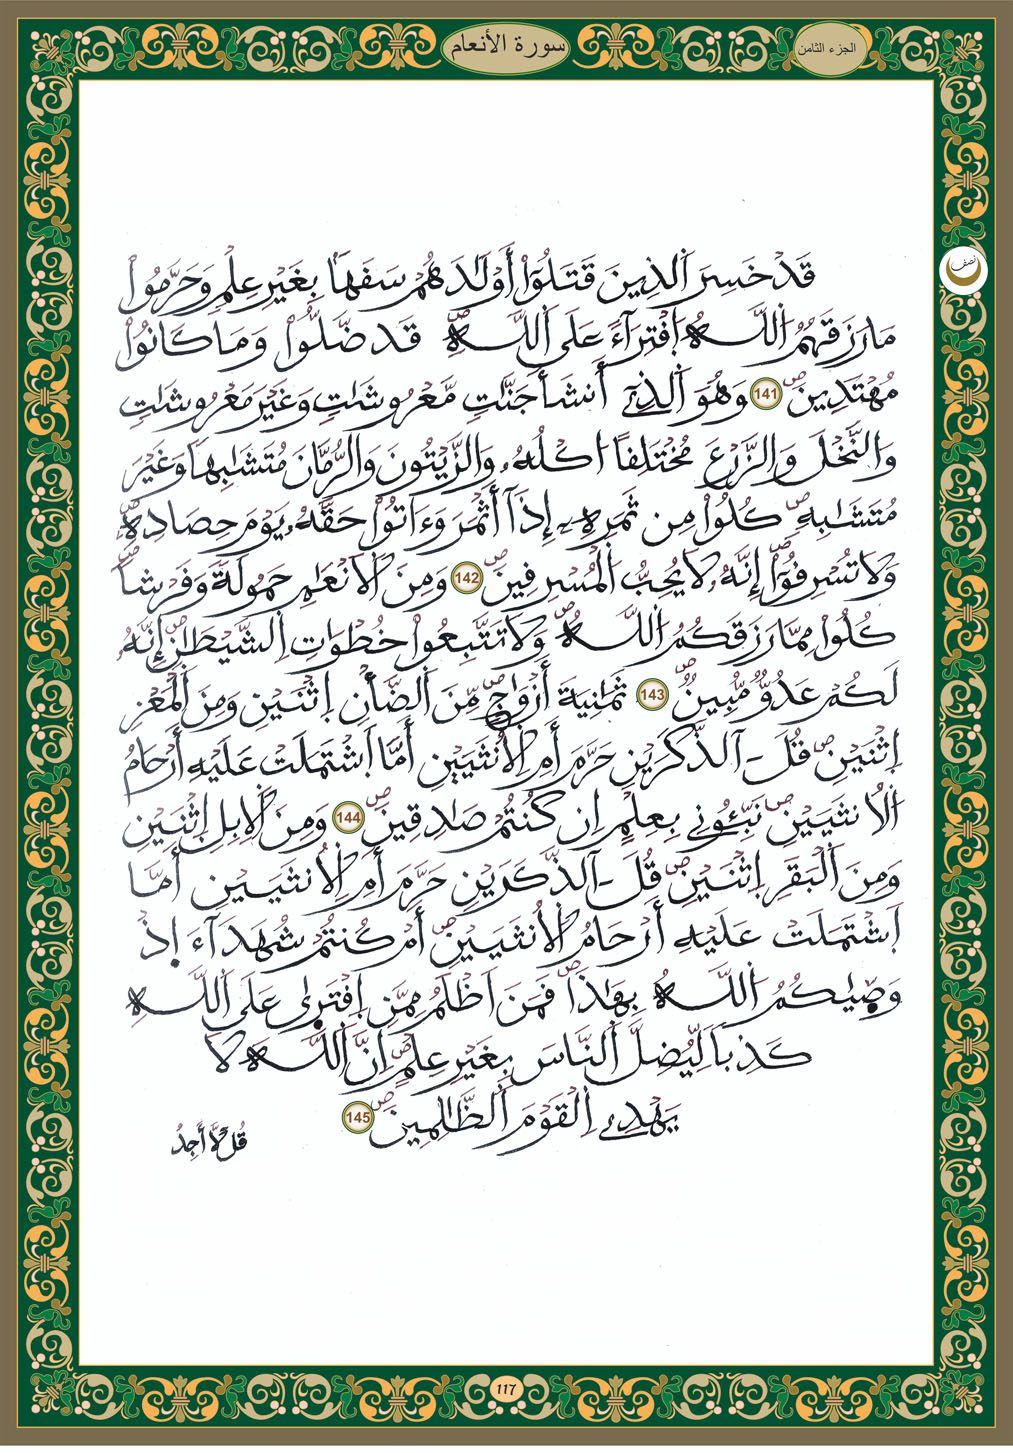 الجزء الثامن
سورة الأنعام
نصف
قَدْ خَسِرَ ٱلذِينَ قَتَلُوٓاْ أَوْلَٰدَهُمْ سَفَهاَۢ بِغَيْرِ عِلْمٖ وَحَرَّمُواْ
مَا رَزَقَهُمُ ٱللَّهُ ٱفْتِرَآءً عَلَى ٱللَّهِۖ قَد ضَّلُّواْ وَمَا كَانُواْ
مُهْتَدِينَۖ 141 وَهُوَ ٱلذِےٓ أَنشَأَ جَنَّٰتٖ مَّعْرُوشَٰتٖ وَغَيْرَ مَعْرُوشَٰتٖ
وَالنَّخْلَ وَالزَّرْعَ مُخْتَلِفاً ا۟كْلُهُۥ وَالزَّيْتُونَ وَالرُّمَّانَ مُتَشَٰبِهاٗ وَغَيْرَ
مُتَشَٰبِهٖۖ كُلُواْ مِن ثَمَرِهِۦٓ إِذَآ أَثْمَرَ وَءَاتُواْ حَقَّهُۥ يَوْمَ حِصَادِهِۦۖ
وَلَا تُسْرِفُوٓاْۖ إِنَّهُۥ لَا يُحِبُّ ٱلْمُسْرِفِينَۖ 142 وَمِنَ ٱلَانْعَٰمِ حَمُولَةٗ وَفَرْشاٗۖ
كُلُواْ مِمَّا رَزَقَكُمُ ٱللَّهُۖ وَلَا تَتَّبِعُواْ خُطُوَٰتِ ٱلشَّيْطَٰنِۖ إِنَّهُۥ
لَكُمْ عَدُوّٞ مُّبِينٞۖ 143 ثَمَٰنِيَةَ أَزْوَٰجٖۖ مِّنَ ٱلضَّأْنِ ٱثْنَيْنِ وَمِنَ ٱلْمَعْزِ
ٱثْنَيْنِۖ قُلَ ـ آلذَّكَرَيْنِ حَرَّمَ أَمِ ٱلُانثَيَيْنِ أَمَّا ٱشْتَمَلَتْ عَلَيْهِ أَرْحَامُ
ٱلُانثَيَيْنِۖ نَبِّـُٔونِے بِعِلْمٍ اِن كُنتُمْ صَٰدِقِينَۖ 144 وَمِنَ ٱلِابِلِ ٱثْنَيْنِ
وَمِنَ ٱلْبَقَرِ ٱثْنَيْنِۖ قُلَ ـ آلذَّكَرَيْنِ حَرَّمَ أَمِ ٱلُانثَيَيْنِ أَمَّا
ٱشْتَمَلَتْ عَلَيْهِ أَرْحَامُ ٱلُانثَيَيْنِۖ أَمْ كُنتُمْ شُهَدَآءَ اِذْ
وَصّۭىٰكُمُ ٱللَّهُ بِهَٰذَاۖ فَمَنَ اَظْلَمُ مِمَّنِ ٱفْتَرَىٰ عَلَى ٱللَّهِ
كَذِباٗ لِّيُضِلَّ ٱلنَّاسَ بِغَيْرِ عِلْمٍۖ اِنَّ ٱللَّهَ لَا
يَهْدِے ٱلْقَوْمَ ٱلظَّٰلِمِينَۖ 145
قُل لَّآ أَجِدُ
117